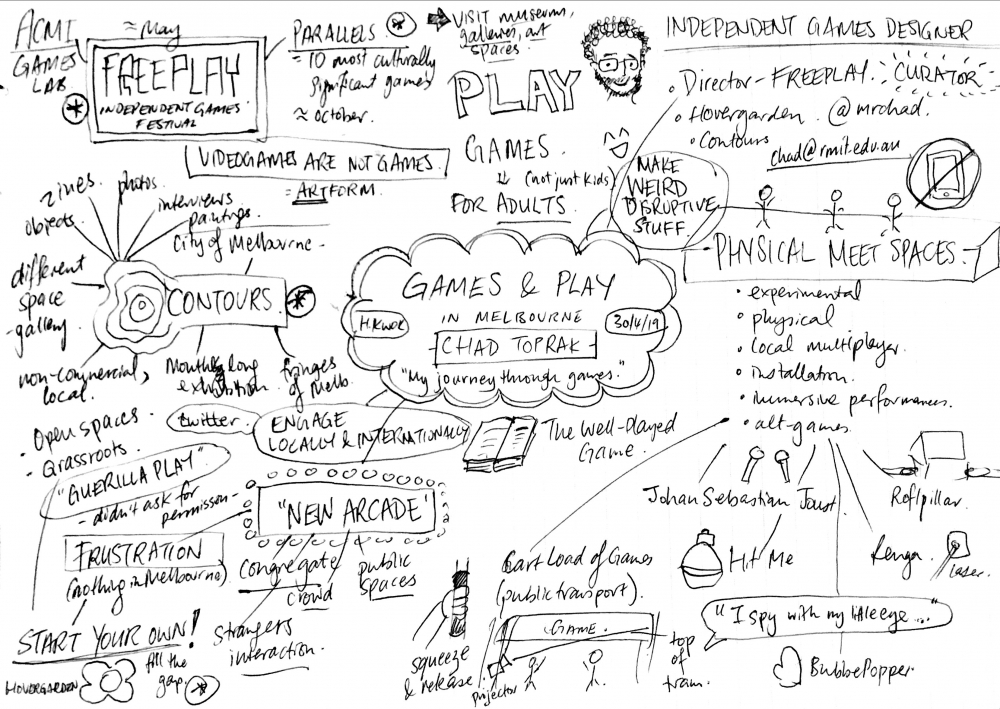 ACMI
GAMES
LAB
≈ May
FREEPLAY
INDEPENDENT GAMES
FESTIVAL
PARALLELS
= 10 most culturally
significant games
≈ October.
VISIT museums,
galleries, art
spaces.
PLAY
GAMES.
(not just kids)
FOR ADULTS.
INDEPENDENT GAMES DESIGNER
• Director - FREEPLAY.
CURATOR
• Hovergarden.
@mrchad.
• Contours
chad@rmit.edu.au
MAKE
WEIRD
DISRUPTIVE
STUFF.
VIDEOGAMES ARE NOT GAMES.
= ARTFORM.
zines.
photos
objects
interviews
paintings.
City of Melbourne -
different
space
- gallery.
CONTOURS.
non-commercial,
local.
Monthly long
exhibition.
fringes
of Melb.
GAMES & PLAY
IN MELBOURNE
H.Kwok
30/4/19
- CHAD TOPRAK -
"My journey through games."
PHYSICAL MEET SPACES.
• experimental
• physical
• local multiplayer.
• installation.
• immersive performances.
• alt-games.
• Open spaces.
• Grassroots.
twitter.
ENGAGE
LOCALLY & INTERNATIONALLY
The Well-Played
Game.
"GUERILLA PLAY"
- didn't ask for
permission -
"NEW ARCADE"
FRUSTRATION
(nothing in Melbourne)
congregate
crowd
public
spaces
START YOUR OWN!
HOVERGARDEN
fill the
gap.
Strangers
interaction.
squeeze
& release
Cart Load of Games
(public transport).
GAME.
projector
top
of
tram.
Johan Sebastian Joust
Roflpillar
Hit Me
Renga.
laser.
"I spy with my little eye..."
BubblePopper.